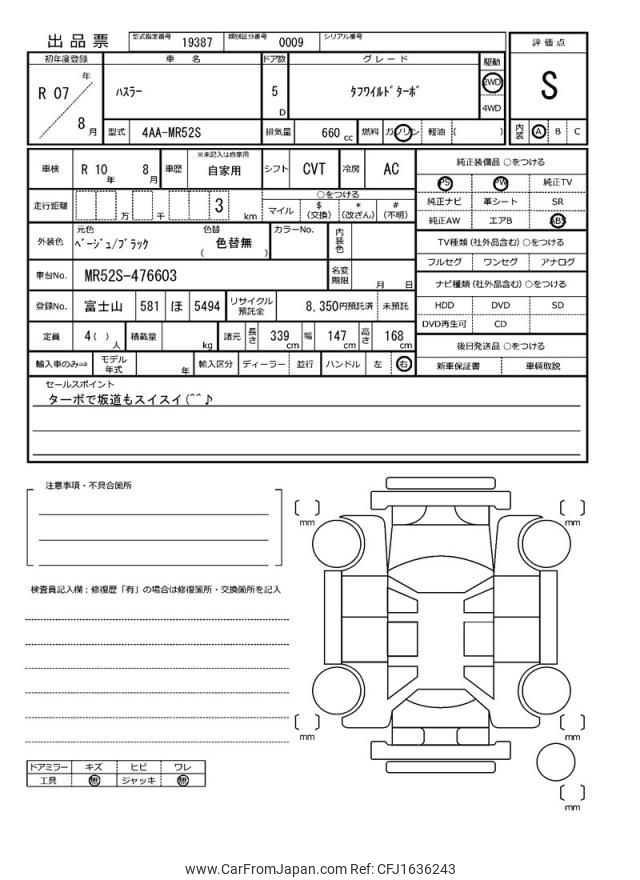 出品票 型式指定番号 19387 類別区分番号 0009 シリアル番号
評価点
S
内装 A B C
初年度登録 車名 ドア数 グレード 駆動
R 07 年 8 月 ハスラー 5 D タフワイルドターボ 2WD 4WD
型式 4AA-MR52S 排気量 660 cc 燃料 ガソリン 軽油 ( )
車検 R 10 年 8 月 車歴 ※未記入は自家用 自家用 シフト CVT 冷房 AC
走行距離 万 千 3 km ○をつける
マイル $ (交換) * (改ざん) # (不明)
外装色 元色 ベージュ/ブラック 色替 ( 色替無 ) カラーNo. 内装色
車台No. MR52S-476603 名変期限 月 日
登録No. 富士山 581 ほ 5494 リサイクル預託金 8,350円預託済 未預託
定員 4( ) 人 積載量 kg 諸元 長さ 339 cm 幅 147 cm 高さ 168 cm
輸入車のみ⇒ モデル年式 年 輸入区分 ディーラー 並行 ハンドル 左 右
純正装備品 ○をつける
PS PW 純正TV
純正ナビ 革シート SR
純正AW エアB ABS
TV種類 (社外品含む) ○をつける
フルセグ ワンセグ アナログ
ナビ種類 (社外品含む) ○をつける
HDD DVD SD
DVD再生可 CD
後日発送品 ○をつける
新車保証書 車輌取説
セールスポイント
ターボで坂道もスイスイ(^^♪
注意事項・不具合箇所
検査員記入欄:修復歴「有」の場合は修復箇所・交換箇所を記入
ドアミラー キズ ヒビ ワレ
工具 無 ジャッキ 無
mm
mm
mm
mm
mm
www.CarFromJapan.com Ref: CFJ1636243